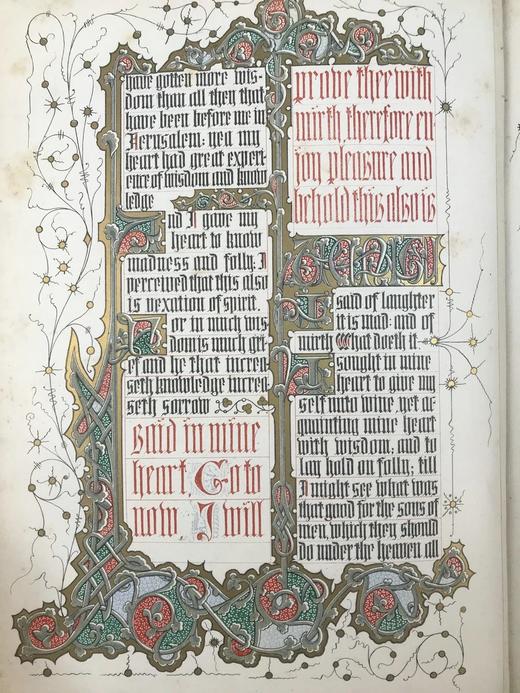 have gotten more wis-
dom than all they that
have been before me in
Jerusalem: yea my
heart had great experi-
ence of wisdom and know
ledge
And I gave my
heart to know
madness and folly: I
perceived that this also
is vexation of spirit
For in much wis-
dom is much gri-
ef and he that increa-
seth knowledge increa-
seth sorrow
I Said in mine
heart, Go to
now, I will
prove thee with
mirth therefore en
joy pleasure and
behold this also is
VANITY
I said of laughter
it is mad: and of
mirth What doeth it
I sought in mine
heart to give my
self unto wine yet ac
quainting mine heart
with wisdom, and to
lay hold on folly, till
I might see what was
that good for the sons of
men, which they should
do under the heaven all